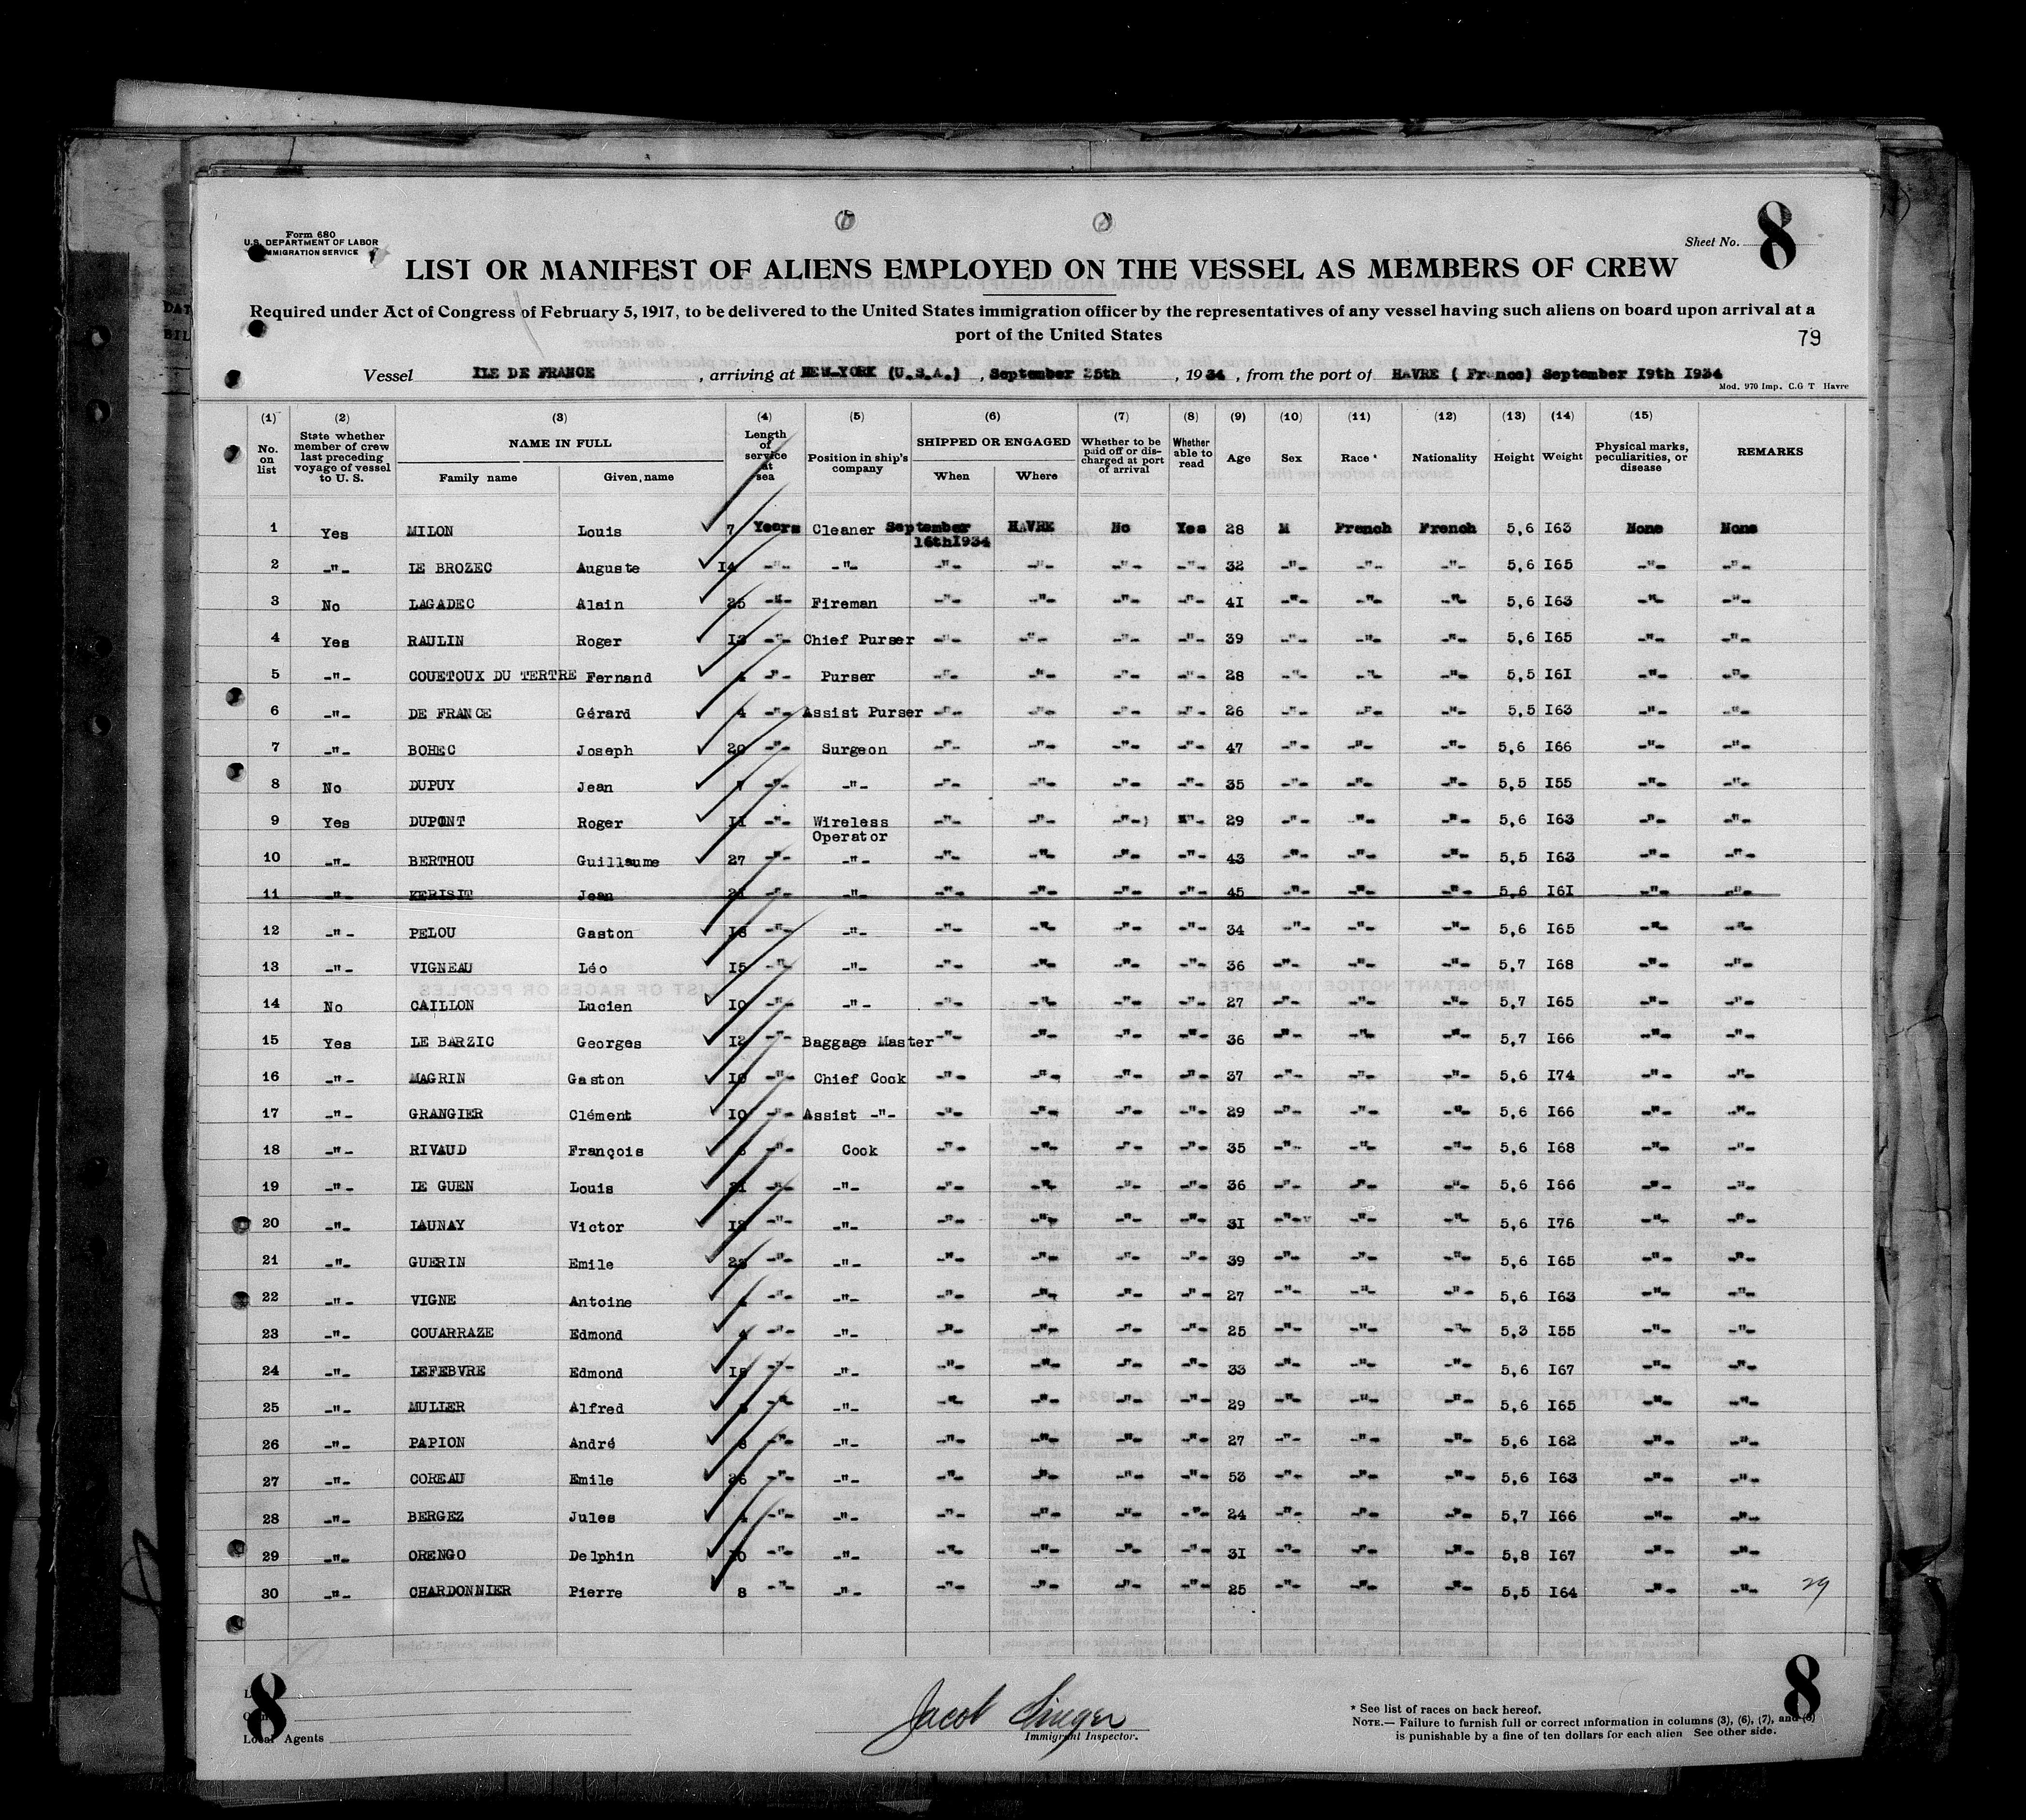 Form 680
U.S. DEPARTMENT OF LABOR
IMMIGRATION SERVICE
Sheet No. 8
LIST OR MANIFEST OF ALIENS EMPLOYED ON THE VESSEL AS MEMBERS OF CREW
Required under Act of Congress of February 5, 1917, to be delivered to the United States immigration officer by the representatives of any vessel having such aliens on board upon arrival at a
port of the United States
79
Vessel ILE DE FRANCE , arriving at NEW-YORK (U.S.A.) , September 25th , 1934 , from the port of HAVRE ( France) September I9th I934
Mod. 970 Imp. C.G T Havre
(1) (2) (3) (4) (5) (6) (7) (8) (9) (10) (11) (12) (13) (14) (15)
No. on list State whether member of crew last preceding voyage of vessel to U. S. NAME IN FULL Family name Given name Length of service at sea Position in ship's company SHIPPED OR ENGAGED When Where Whether to be paid off or discharged at port of arrival Whether able to read Age Sex Race * Nationality Height Weight Physical marks, peculiarities, or disease REMARKS
1 Yes MILON Louis 7 Years Cleaner September 16thI934 HAVRE No Yes 28 M French French 5,6 I63 None None
2 -"- LE BROZEC Auguste I4 -"- -"- -"- -"- -"- -"- 32 -"- -"- -"- 5,6 I65 -"- -"-
3 No LAGADEC Alain 25 -"- Fireman -"- -"- -"- -"- 4I -"- -"- -"- 5,6 I63 -"- -"-
4 Yes RAULIN Roger I3 -"- Chief Purser -"- -"- -"- -"- 39 -"- -"- -"- 5,6 I65 -"- -"-
5 -"- COUETOUX DU TERTRE Fernand 4 -"- Purser -"- -"- -"- -"- 28 -"- -"- -"- 5,5 I6I -"- -"-
6 -"- DE FRANCE Gérard 4 -"- Assist Purser -"- -"- -"- -"- 26 -"- -"- -"- 5,5 I63 -"- -"-
7 -"- BOHEC Joseph 20 -"- Surgeon -"- -"- -"- -"- 47 -"- -"- -"- 5,6 I66 -"- -"-
8 No DUPUY Jean -"- -"- -"- -"- -"- -"- 35 -"- -"- -"- 5,5 I55 -"- -"-
9 Yes DUPONT Roger I1 -"- Wireless Operator -"- -"- -"- -"- 29 -"- -"- -"- 5,6 I63 -"- -"-
10 -"- BERTHOU Guillaume 27 -"- -"- -"- -"- -"- -"- 43 -"- -"- -"- 5,5 I63 -"- -"-
11 -"- KERISIT Jean -"- -"- -"- -"- -"- -"- 45 -"- -"- -"- 5,6 I6I -"- -"-
12 -"- PELOU Gaston -"- -"- -"- -"- -"- -"- 34 -"- -"- -"- 5,6 I65 -"- -"-
13 -"- VIGNEAU Léo I5 -"- -"- -"- -"- -"- -"- 36 -"- -"- -"- 5,7 I68 -"- -"-
14 No CAILLON Lucien I0 -"- -"- -"- -"- -"- -"- 27 -"- -"- -"- 5,7 I65 -"- -"-
15 Yes LE BARZIC Georges I2 -"- Baggage Master -"- -"- -"- -"- 36 -"- -"- -"- 5,7 I66 -"- -"-
16 -"- MAGRIN Gaston I0 -"- Chief Cook -"- -"- -"- -"- 37 -"- -"- -"- 5,6 I74 -"- -"-
17 -"- GRANGIER Clément I0 -"- Assist -"- -"- -"- -"- -"- 29 -"- -"- -"- 5,6 I66 -"- -"-
18 -"- RIVAUD François -"- Cook -"- -"- -"- -"- 35 -"- -"- -"- 5,6 I68 -"- -"-
19 -"- LE GUEN Louis -"- -"- -"- -"- -"- -"- 36 -"- -"- -"- 5,6 I66 -"- -"-
20 -"- LAUNAY Victor -"- -"- -"- -"- -"- -"- 3I -"- -"- -"- 5,6 I76 -"- -"-
21 -"- GUERIN Emile -"- -"- -"- -"- -"- -"- 39 -"- -"- -"- 5,6 I65 -"- -"-
22 -"- VIGNE Antoine -"- -"- -"- -"- -"- -"- 27 -"- -"- -"- 5,6 I63 -"- -"-
23 -"- COUARRAZE Edmond 4 -"- -"- -"- -"- -"- -"- 25 -"- -"- -"- 5,3 I55 -"- -"-
24 -"- LEFEBVRE Edmond -"- -"- -"- -"- -"- -"- 33 -"- -"- -"- 5,6 I67 -"- -"-
25 -"- MULLER Alfred -"- -"- -"- -"- -"- -"- 29 -"- -"- -"- 5,6 I65 -"- -"-
26 -"- PAPION André -"- -"- -"- -"- -"- -"- 27 -"- -"- -"- 5,6 I62 -"- -"-
27 -"- COREAU Emile -"- -"- -"- -"- -"- -"- 53 -"- -"- -"- 5,6 I63 -"- -"-
28 -"- BERGEZ Jules -"- -"- -"- -"- -"- -"- 24 -"- -"- -"- 5,7 I66 -"- -"-
29 -"- ORENGO Delphin -"- -"- -"- -"- -"- -"- 3I -"- -"- -"- 5,8 I67 -"- -"-
30 -"- CHARDONNIER Pierre 8 -"- -"- -"- -"- -"- -"- 25 -"- -"- -"- 5,5 I64 -"- -"-
29
8
8
Local Agents
Jacob Singer
Immigrant Inspector.
* See list of races on back hereof.
NOTE.— Failure to furnish full or correct information in columns (3), (6), (7), and (8)
is punishable by a fine of ten dollars for each alien See other side.